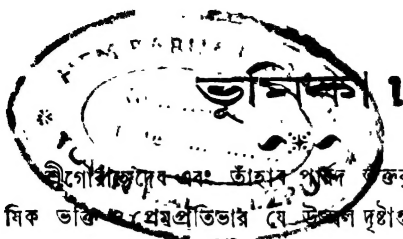 ভূমিকা।
শ্রীগৌরাঙ্গদেব এবং তাঁহার পার্ষদ ভক্তর
ষিক ভক্তি ও প্রেমপ্রতিভার যে উজ্জ্বল দৃষ্টান্ত